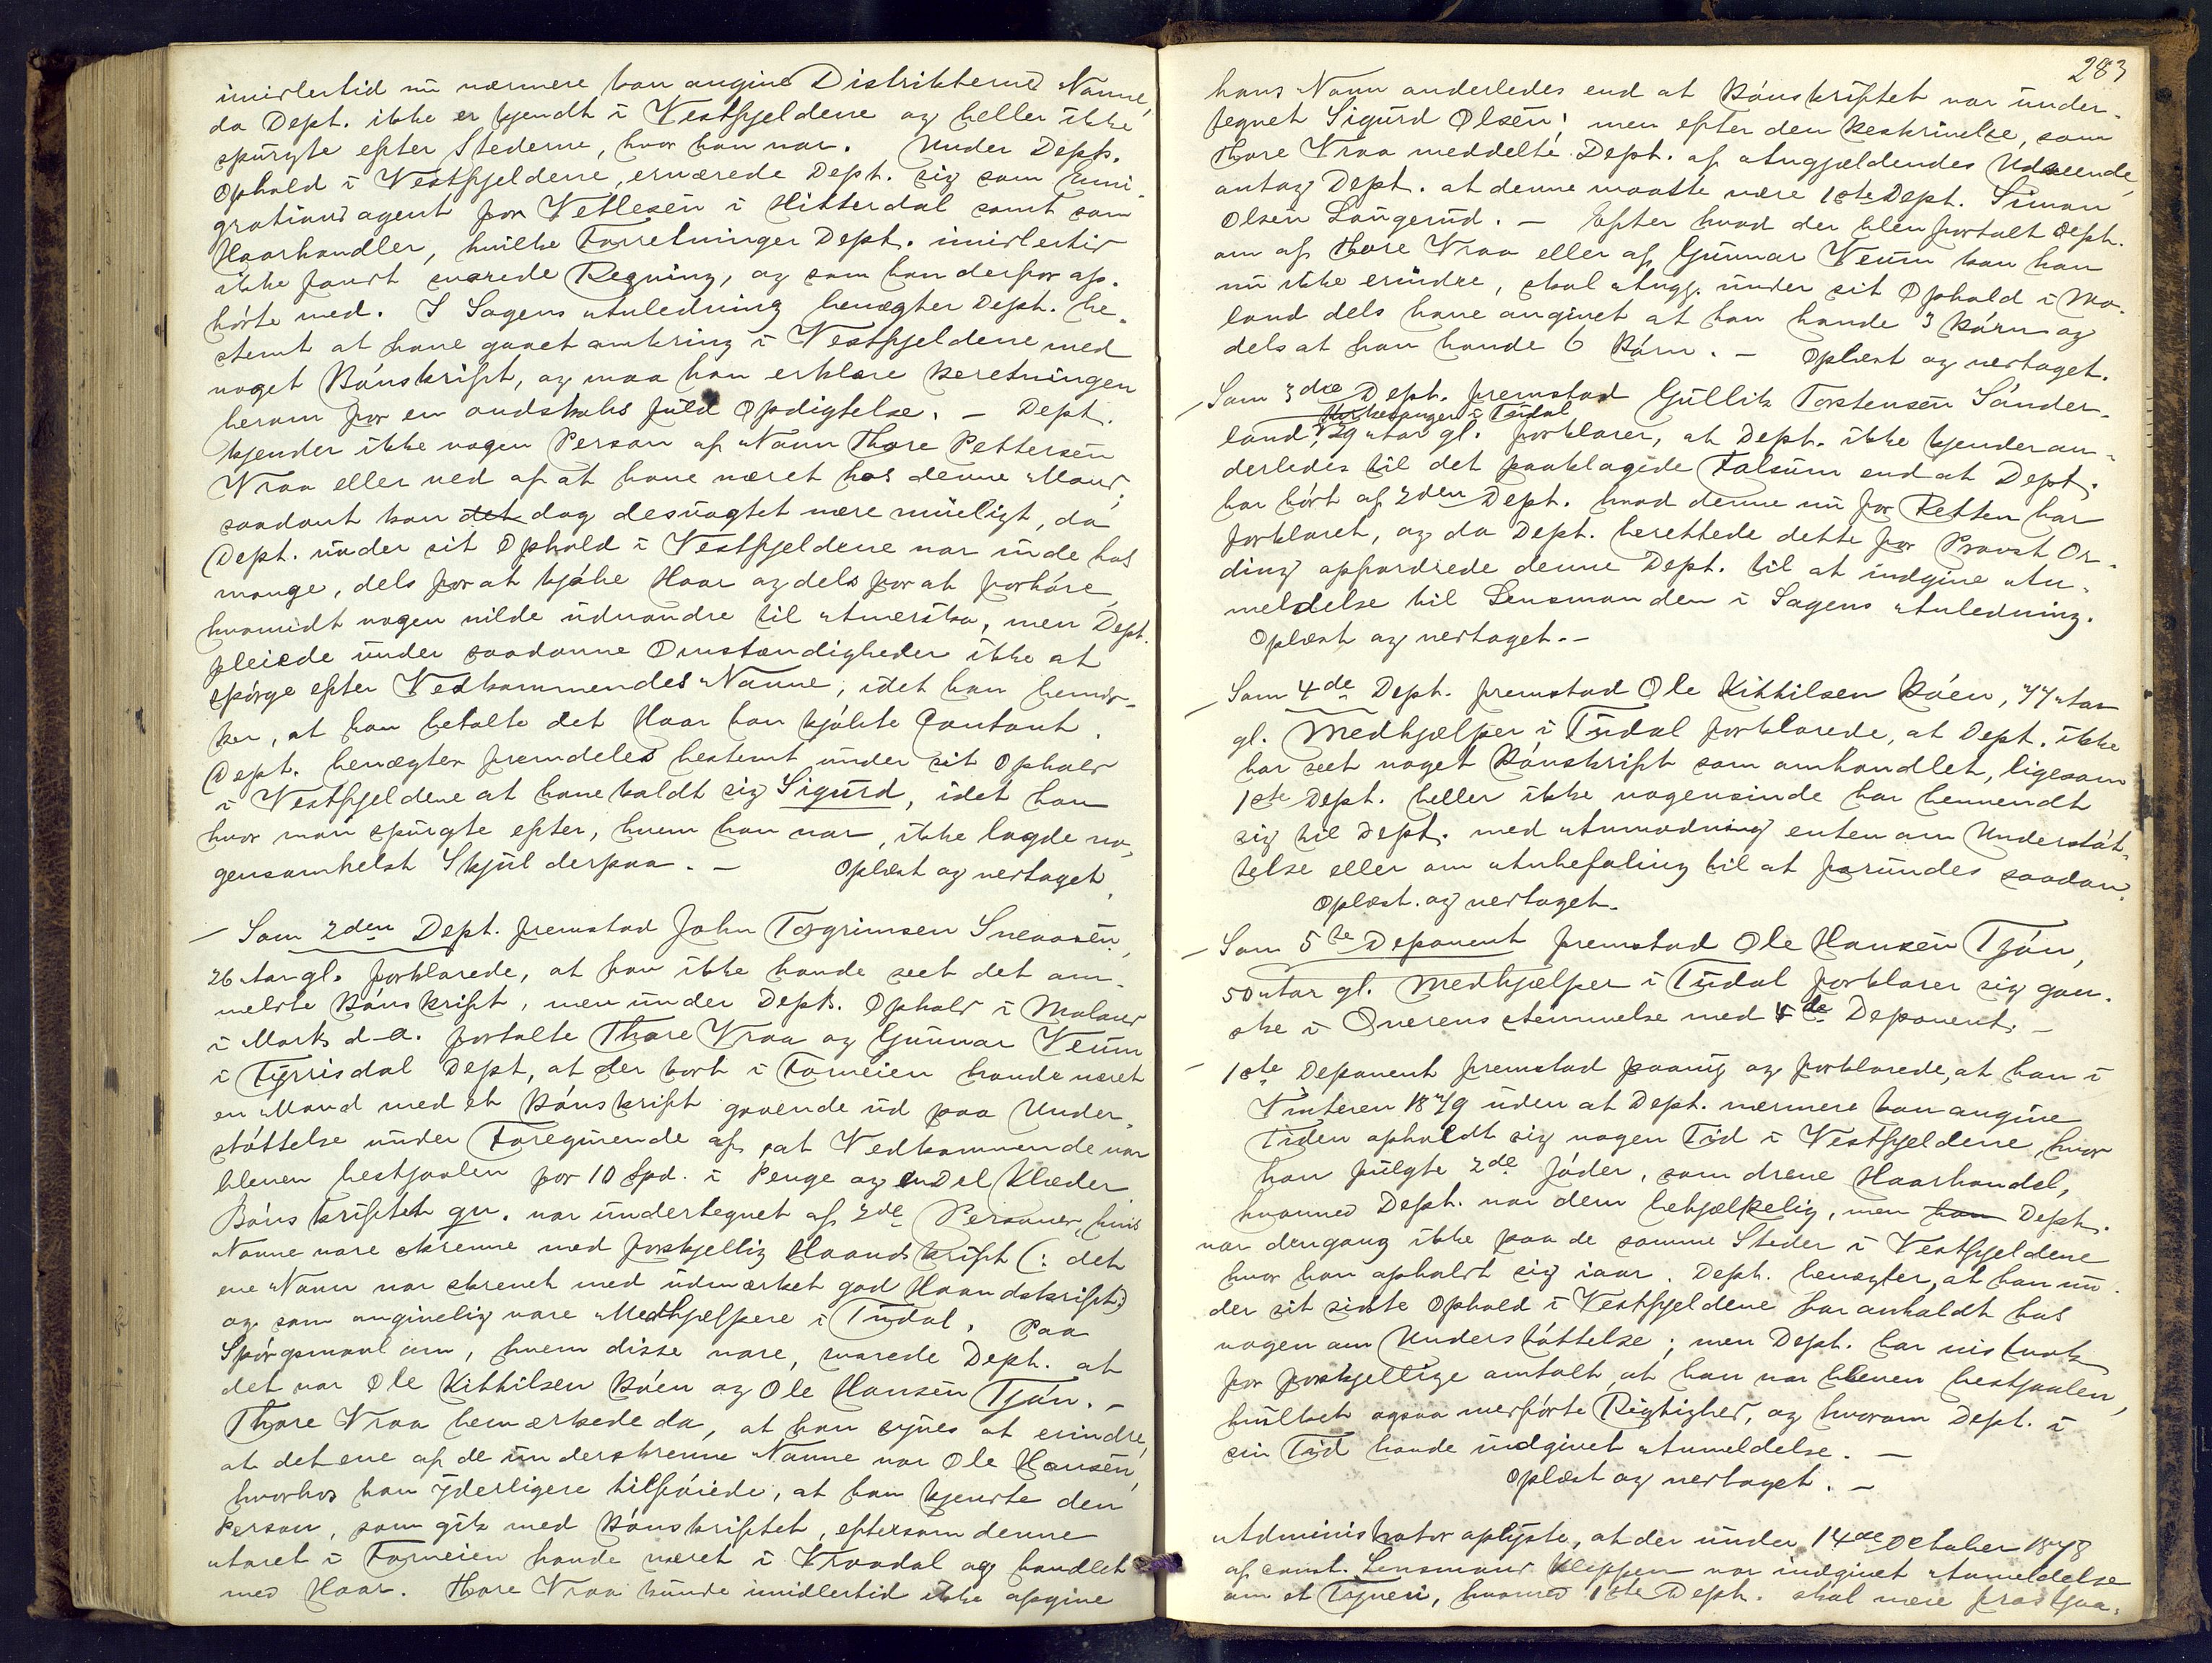 imidlertid nu nærmere kan angive Distrikternes Navne,
da Dept. ikke er kjendt i Vestfjeldene og heller ikke
spurgte efter Stederne, hvor han var. Under Depts.
Ophold i Vestfjeldene, ernærede Dept. sig som Emi-
grationsagent for Vetlesen i Hitterdal samt som
Haarhandler, hvilke Forretninger Dept. imidlertid
ikke fandt svarede Regning, og som han derfor op-
hørte med. I Sagens Anledning benægter Dept. be-
stemt at have gaaet omkring i Vestfjeldene med
noget Bønskrift, og maa han erklære Beretningen
herom for en ondskabsfuld Opdigtelse. – Dept.
kjender ikke nogen Person af Navn Thore Pettersen
Vraa eller ved af at have været hos denne Mand;
saadant kan det dog desuagtet være muligt, da
Dept. under sit Ophold i Vestfjeldene var inde hos
mange, dels for at kjøbe Haar og dels for at forhøre,
hvorvidt nogen vilde udvandre til Amerika, men Dept.
pleiede under saadanne Omstændigheder ikke at
spørge efter Vedkommendes Navne, idet han bemær-
ker, at han betalte det Haar han kjøbte Contant.
Dept. benægter fremdeles bestemt under sit Ophold
i Vestfjeldene at have kaldt sig Sigurd, idet han
hvor man spurgte efter, hvem han var, ikke lagde no-
gensomhelst Skjul derpaa. – Oplæst og vedtaget.
– Som 2den Dept. fremstod John Torgrimsen Sneaasen,
26 Aar gl. forklarede, at han ikke havde seet det om-
meldte Bønskrift, men under Depts. Ophold i Moland
i Marts d.A. fortalte Thore Vraa og Gunnar Veum
i Fyrrisdal Dept., at der bort i Forveien havde været
en Mand med et Bønskrift gaaende ud paa Under-
støttelse under Foregivende af at Vedkommende var
bleven bestjaalen for 10 Spd. i Penge og en Del Klæder
Bønskriftet qu. var undertegnet af 2de Personer, hvis
Navne vare skrevne med forskjellig Haandskrift (: det
ene Navn var skrevet med udmærket god Haandskrift:)
og som angivelig vare Medhjelpere i Tudal. Paa
Spørgsmaal om, hvem disse vare, svarede Dept. at
det var Ole Kittilsen Bøen og Ole Hansen Tjøn. –
Thore Vraa bemærkede da, at han synes at erindre,
at det ene af de underskrevne Navne var Ole Hansen,
hvorhos han yderligere tilføiede, at han kjendte den
Person, som gik med Bønskriftet, eftersom denne
Aaret i Forveien havde været i Vraadal og handlet
med Haar. Thore Vraa kunde imidlertid ikke opgive
283
hans Navn anderledes end at Bønskriftet var under-
tegnet Sigurd Olsen; men efter den Beskrivelse, som
Thore Vraa meddelte Dept. af Angjældendes Udseende,
antog Dept. at denne maatte være 1ste Dept. Simon
Olsen Langerud. – Efter hvad der blev fortalt Dept.
om af Thore Vraa eller af Gunnar Veum kan han
nu ikke erindre, skal Angj. under sit Ophold i Mo-
land dels have angivet at han havde 3 Børn og
dels at han havde 6 Børn. – Oplæst og vedtaget.
– Som 3die Dept. fremstod Gullik Torstensen Sønder-
Kirkesanger i Tudal
land, 29 Aar gl. forklarer, at Dept. ikke kjender an-
derledes til det paaklagede Falsum end at Dept.
har hørt af 2den Dept. hvad denne nu for Retten har
forklaret, og da Dept. berettede dette for Provst Or-
ding opfordrede denne Dept. til at indgive An-
meldelse til Lensmanden i Sagens Anledning.
Oplæst og vedtaget. –
– Som 4de Dept. fremstod Ole Kittilsen Bøen, 77 Aar
gl. Medhjælper i Tudal forklarede, at Dept. ikke
har seet noget Bønskrift som omhandlet, ligesom
1ste Dept. heller ikke nogensinde har henvendt
sig til Dept. med Anmodning enten om Understøt-
telse eller om Anbefaling til at forundes saadan.
Oplæst og vedtaget.
– Som 5te Deponent fremstod Ole Hansen Tjøn,
50 Aar gl. Medhjælper i Tudal forklarer sig gan-
ske i Overensstemmelse med 4de Deponent. –
– 1ste Deponent fremstod paany og forklarede, at han i
Vinteren 1879 uden at Dept. nærmere kan angive
Tiden opholdt sig nogen Tid i Vestfjeldene, hvor
han fulgte 2de Jøder, som dreve Haarhandel,
hvormed Dept. var dem behjælpelig, men han Dept.
var dengang ikke paa de samme Steder i Vestfjeldene
hvor han opholdt sig iaar. Dept. benægter, at han un-
der sit sidste Ophold i Vestfjeldene har anholdt hos
nogen om Understøttelse; men Dept. har vistnok
for forskjellige omtalt at han var bleven bestjaalen,
hvilket ogsaa medførte Rigtighed, og hvorom Dept. i
sin Tid havde indgivet Anmeldelse. –
Oplæst og vedtaget. –
Administrator oplyste, at der under 14de October 1878
af const. Lensmand Kleppen var indgivet Anmeldelse
om et Tyveri, hvorved 1ste Dept. skal være frastjaa-